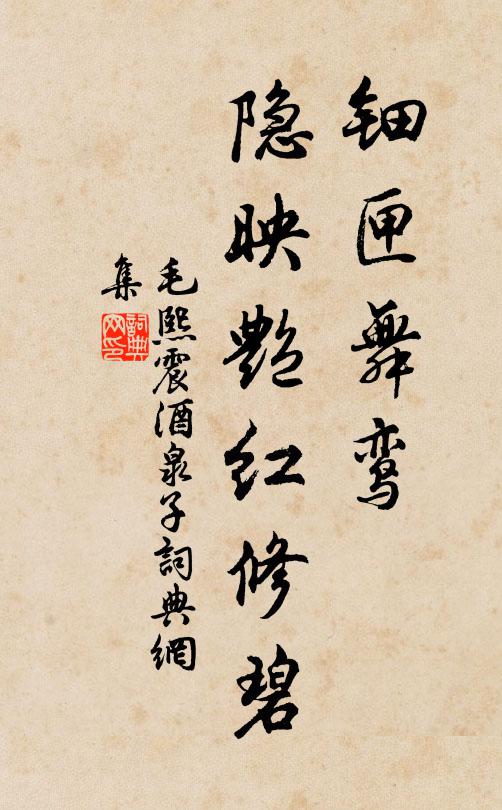 钿匣舞鸾
隐映艳红修碧
毛熙震酒泉子詞典網
集
詞典
网印